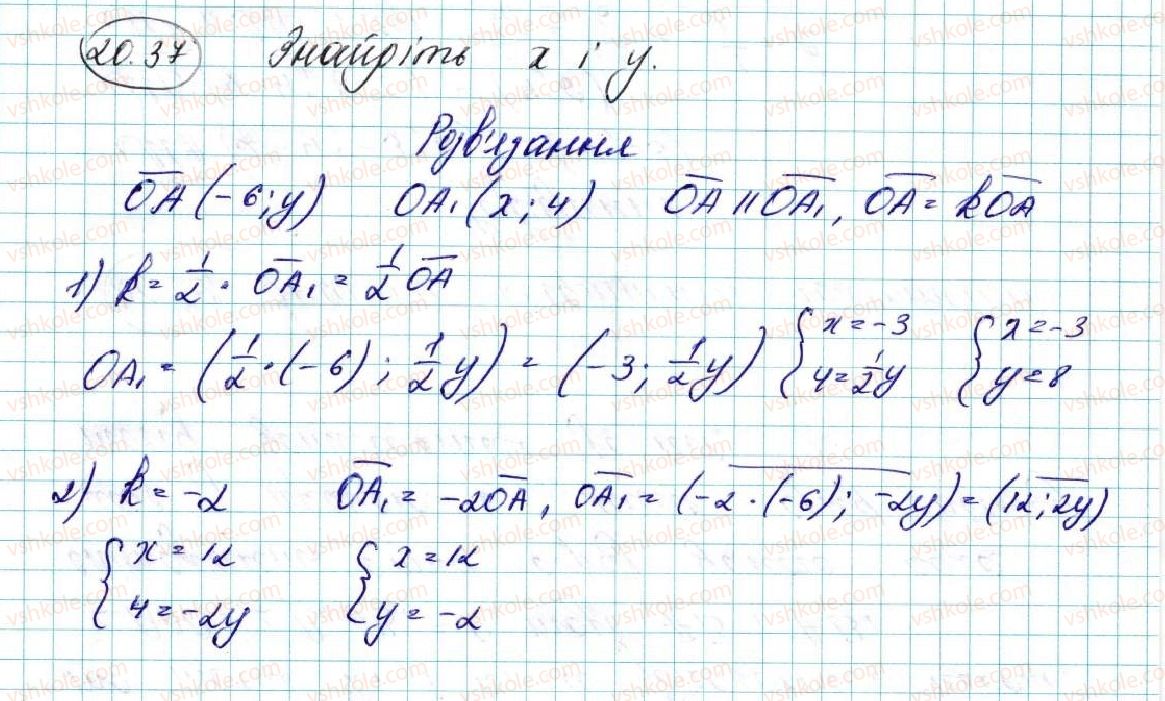 20.37 Знайдіть x і y.
Розв'язання
OA (-6; y) OA₁ (x; 4) OA || OA₁, OA = kOA
1) k = 1/2 · OA₁ = 1/2 OA
OA₁ = (1/2 · (-6); 1/2 y) = (-3; 1/2 y) { x = -3 { x = -3
4 = 1/2 y y = 8
2) k = -2 OA₁ = -2OA, OA₁ = (-2 · (-6); -2y) = (12; 2y)
{ x = 12 { x = 12
4 = -2y y = -2
vshkole.com